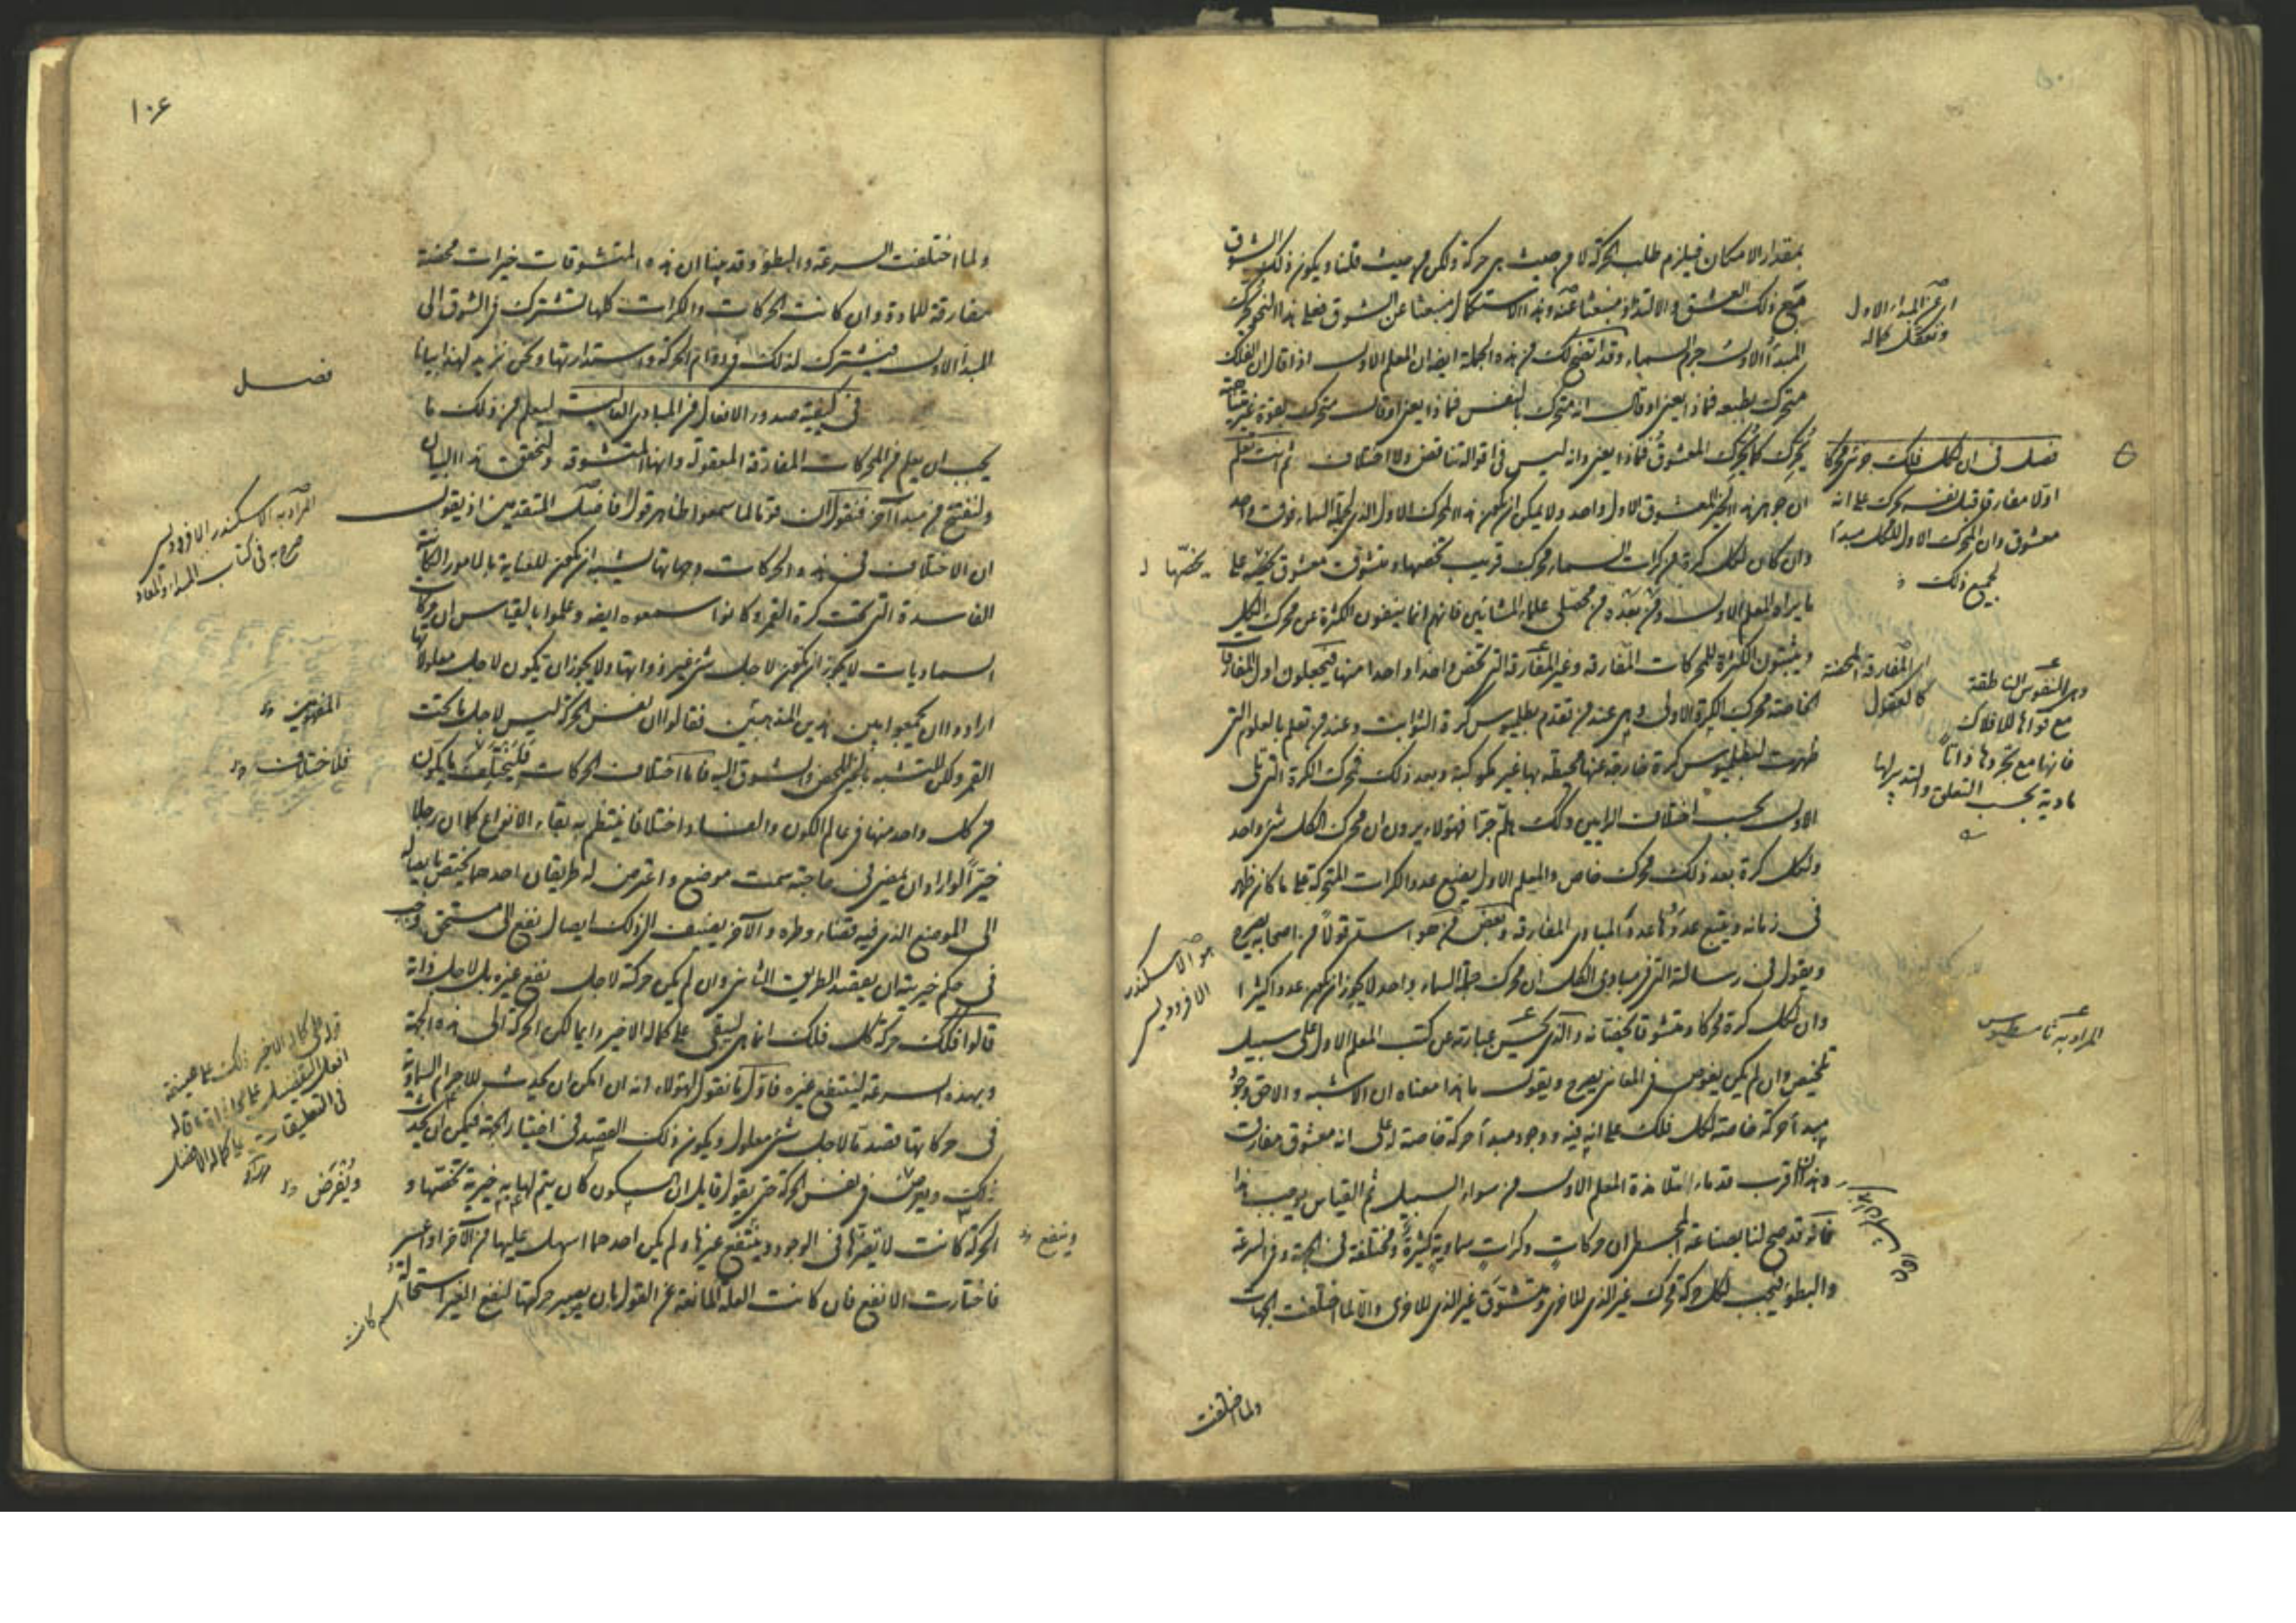 بمقدار الامكان فيلزم طلب الحركة لا من حيث هى حركة ولكن من حيث قلنا ويكون ذلك الشوق
يتبع ذلك العشق والالتذاذ منبعثا عنه وهذا الاستكمال منبعثا عن الشوق فعلى هذا النحو يحرك
المبدأ الاول جرم السماء وقد اتضح لك من هذه الجملة ايضا ان المعلم الاول اذا قال ان الفلك
متحرك بطبعه فماذا يعنى او قال انه متحرك بالنفس فماذا يعنى او قال متحرك بقوة غير متناهية
يحرك كما يحرك المعشوق فماذا يعنى وانه ليس فى اقواله تناقض ولا اختلاف ثم انت تعلم
ان جوهر هذا الخير المعشوق الاول واحد ولا يمكن ان يكون هذا المحرك الاول الذى لجملة السماء فوق واحد
وان كان لكل كرة من كرات السماء محرك قريب يخصها ومتشوق معشوق يخصه على
ما يراه المعلم الاول ومن بعده من محصلى علماء المشائين فانهم انما ينفون الكثرة عن محرك الكل
ويثبتون الكثرة للمحركات المفارقة وغير المفارقة التى تخص واحدا واحدا منها فيجعلون اول المفارقات
الخاصة محرك الكرة الاولى وهى عند من تقدم بطليموس كرة الثوابت وعند من تعلم بالعلوم التى
ظهرت لبطليموس كرة خارجة عنها محيطة بها غير مكوكبة وبعد ذلك فمحرك الكرة التى تلى
الاولى بحسب اختلاف الرايين وكذلك هلم جرا فهؤلاء يرون ان محرك الكل شئ واحد
ولكل كرة بعد ذلك محرك خاص والمعلم الاول يضع عدد الكرات المتحركة على ما كان ظهر
فى زمانه ويتبع عددها عدد المبادى المفارقة وبعض من هو اسد قولا من اصحابه يصرح
ويقول فى رسالته التى فى مبادى الكل ان محرك جملة السماء واحد لا يجوز ان يكون عددا كثيرا
وان لكل كرة محركا ومتشوقا يخصانه والذى يحسن عبارته عن كتب المعلم الاول على سبيل
تلخيص وان لم يكن يغوص فى المعانى يصرح ويقول ما هذا معناه ان الاشبه والاحق وجود
مبدأ حركة خاصة لكل فلك على انه فيه ووجود مبدأ حركة خاصة له على انه معشوق مفارق
وهذان اقرب قدماء تلامذة المعلم الاول من سواء السبيل ثم القياس يوجب هذا
فانه قد صح لنا بصناعة المجسطى ان حركات وكرات سماوية كثيرة ومختلفة فى الجهة وفى السرعة
والبطؤ فيجب لكل حركة محرك غير الذى للاخرى ومتشوق غير الذى للاخرى والا لما اختلفت الجهات
ولما اختلفت
اى عن المبدأ الاول
وتعقل كماله
فصل فى ان لكل فلك جزئى محركا
اولا مفارقا قبل نفسه يحرك على انه
معشوق وان المحرك الاول للكل مبدأ
لجميع ذلك
يخصها
اى المفارقة المحضة
كالعقول
وهى النفوس الناطقة
مع قواها للافلاك
فانها مع تجردها ذاتا
مادية بحسب التعلق والتدبير لها
هو الاسكندر
الافروديسى
المراد به ثامسطيوس
١٠٦
ولما اختلفت السرعة والبطؤ وقد بينا ان هذه المتشوقات خيرات محضة
مفارقة للمادة وان كانت الحركات والكرات كلها تشترك فى الشوق الى
المبدأ الاول فيشترك لذلك فى دوام الحركة واستدارتها ونحن نزيد لهذا بيانا
فصل
فى كيفية صدور الافعال من المبادى العالية ليعلم من ذلك ما
يجب ان يعلم من المحركات المفارقة المعقولة وانها المتشوقة ولنحقق هذا البيان
ولنفتتح من مبدأ آخر فنقول ان قوما لما سمعوا ظاهر قول فاضل المتقدمين اذ يقول
ان الاختلاف فى هذه الحركات وجهاتها يشبه ان يكون للعناية بالامور الكائنة
الفاسدة التى تحت كرة القمر وكانوا سمعوه ايضا وعلموا بالقياس ان حركات
السماويات لا يجوز ان تكون لاجل شئ غير ذواتها ولا يجوز ان تكون لاجل معلولاتها
ارادوا ان يجمعوا بين هذين المذهبين فقالوا ان نفس الحركة ليس لاجل ما تحت
القمر ولكن للتشبه بالخير المحض والشوق اليه فاما اختلاف الحركات فليختلف ما يكون
من كل واحد منها فى عالم الكون والفساد اختلافا ينتظم به بقاء الانواع كما ان رجلا
خيرا لو اراد ان يمضى فى حاجته سمت موضع واعترض له طريقان احدهما يختص بايصاله
الى الموضع الذى فيه قضاء وطره والآخر يضيف الى ذلك ايصال نفع الى مستحق وجب
فى حكم خيريته ان يقصد الطريق الثانى وان لم يكن حركته لاجل نفع غيره بل لاجل ذاته
قالوا فكذلك حركة كل فلك انما هى ليبقى على كماله الاخير دايما لكن الحركة الى هذه الجهة
وبهذه السرعة لينتفع غيره فاول ما نقول لهؤلاء انه ان امكن ان يحدث للاجرام السماوية
فى حركاتها قصد ما لاجل شئ معلول ويكون ذلك القصد فى اختيار الجهة فيمكن ان يحدث
ذلك ويعرض فى نفس الحركة حتى يقول قايل ان السكون كان يتم لها به خيرية تخصها و
الحركة كانت لا تضرها فى الوجود وينتفع غيرها ولم يكن احدهما اسهل عليها من الآخر او اعسر
فاختارت الانفع فان كانت العلة المانعة عن القول بان يصير حركتها لنفع الغير استحالة
المراد به الاسكندر الافروديسى
صرح به فى كتاب المبدأ والمعاد
المذهبين
فلاختلاف
فى التعليقات
ويفرض
وينفع